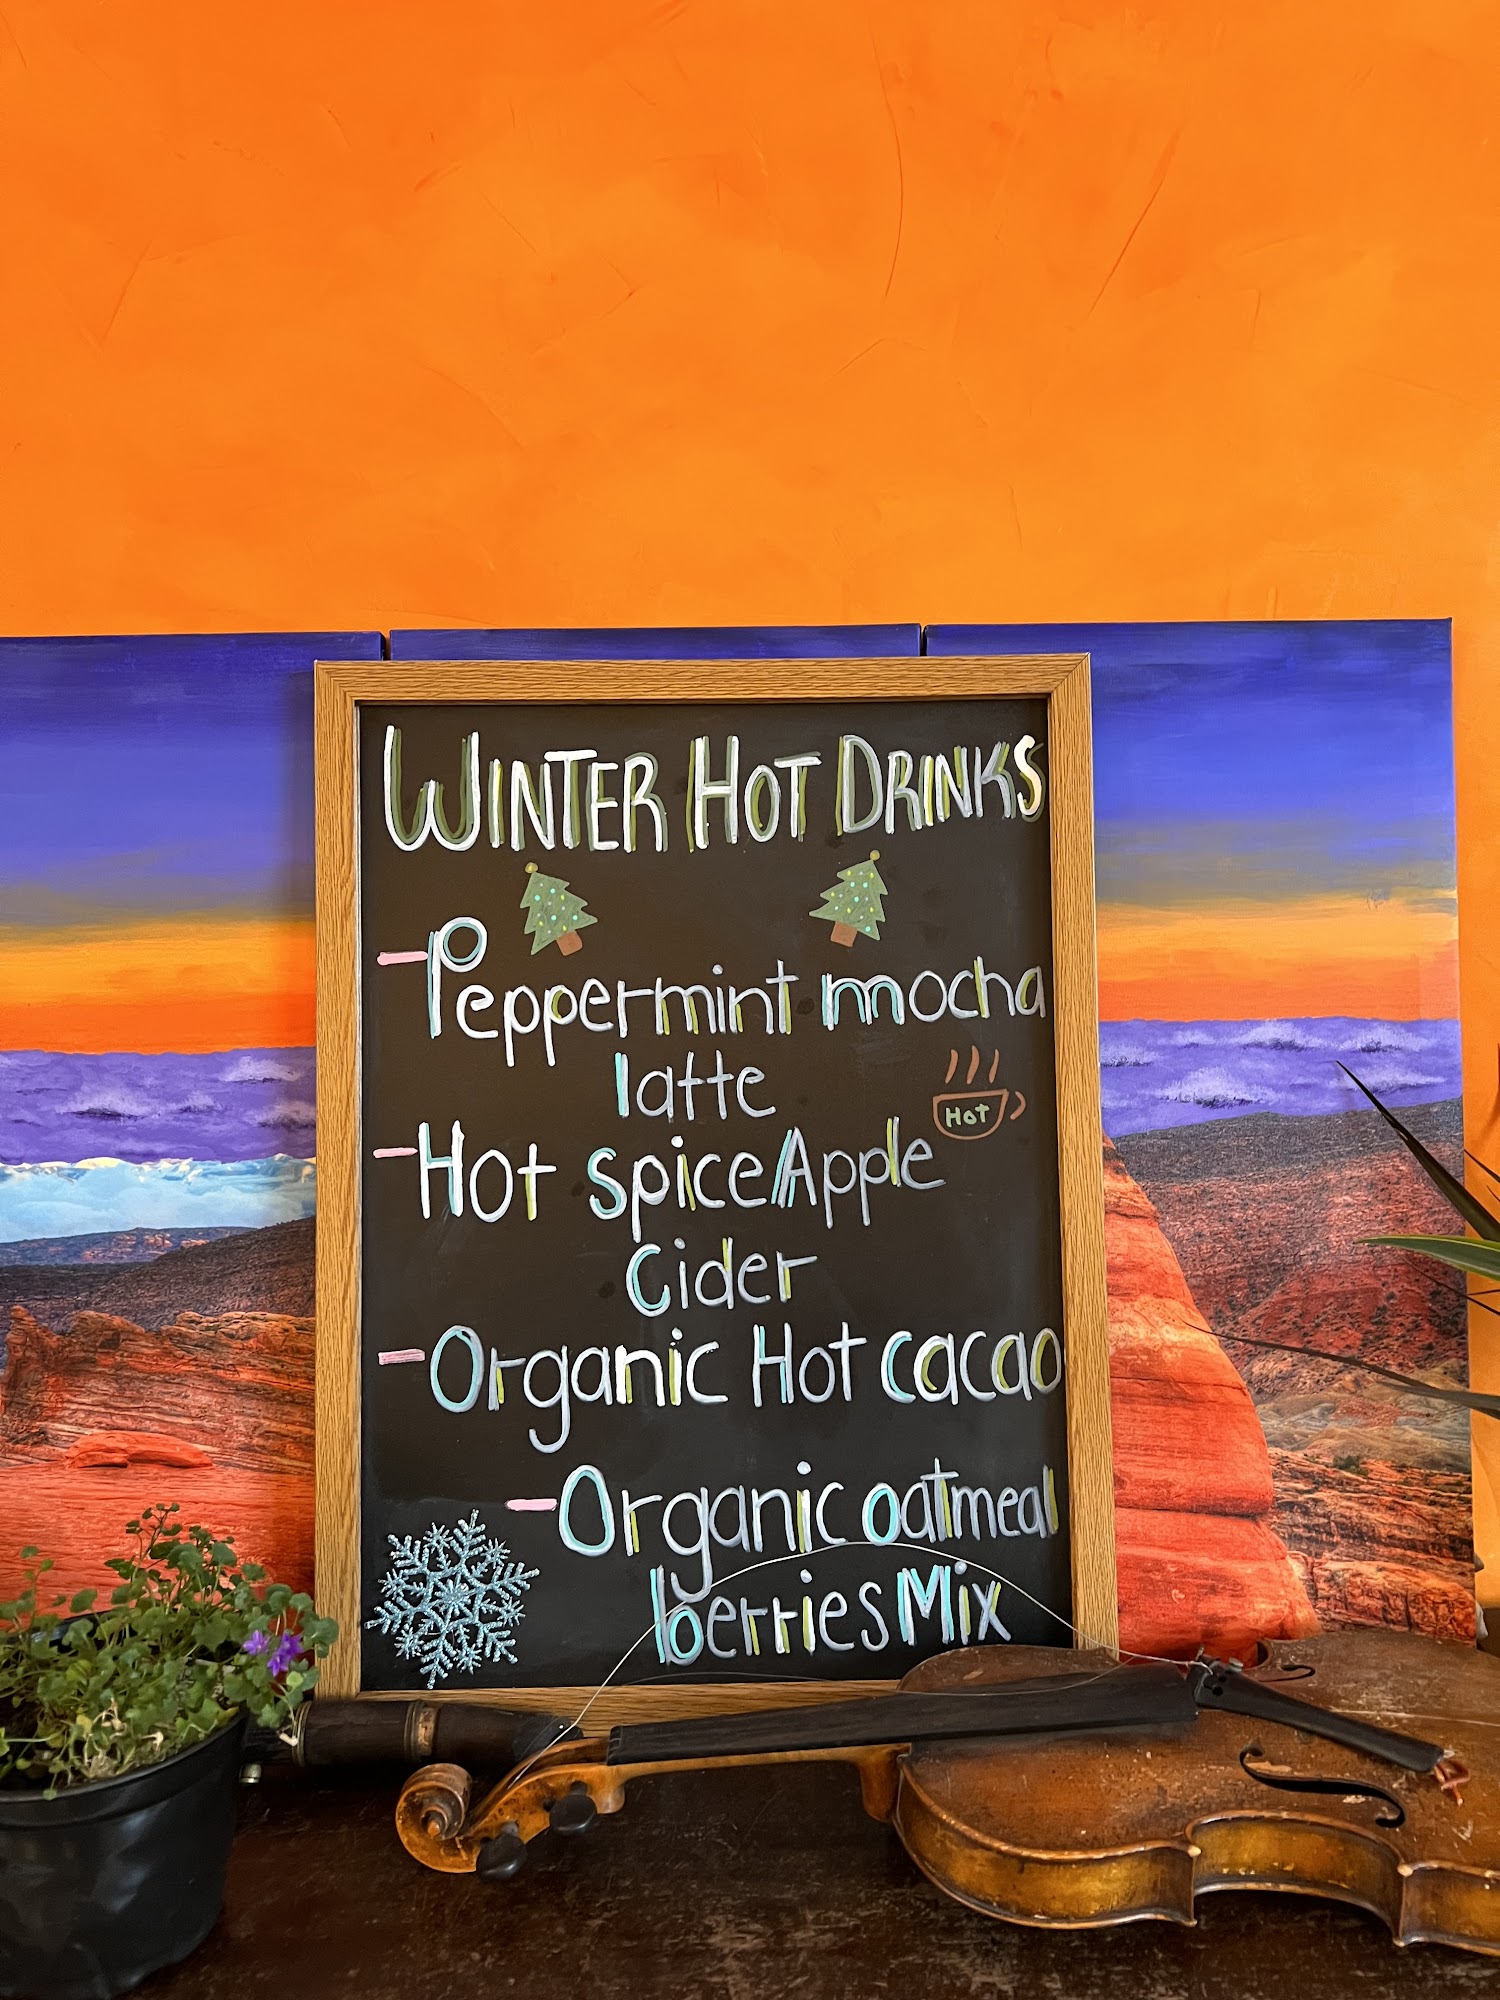 WINTER HOT DRINKS
-Peppermint mocha
latte
HOT
-Hot spice Apple
Cider
-Organic Hot cacao
-Organic oatmeal
berries Mix